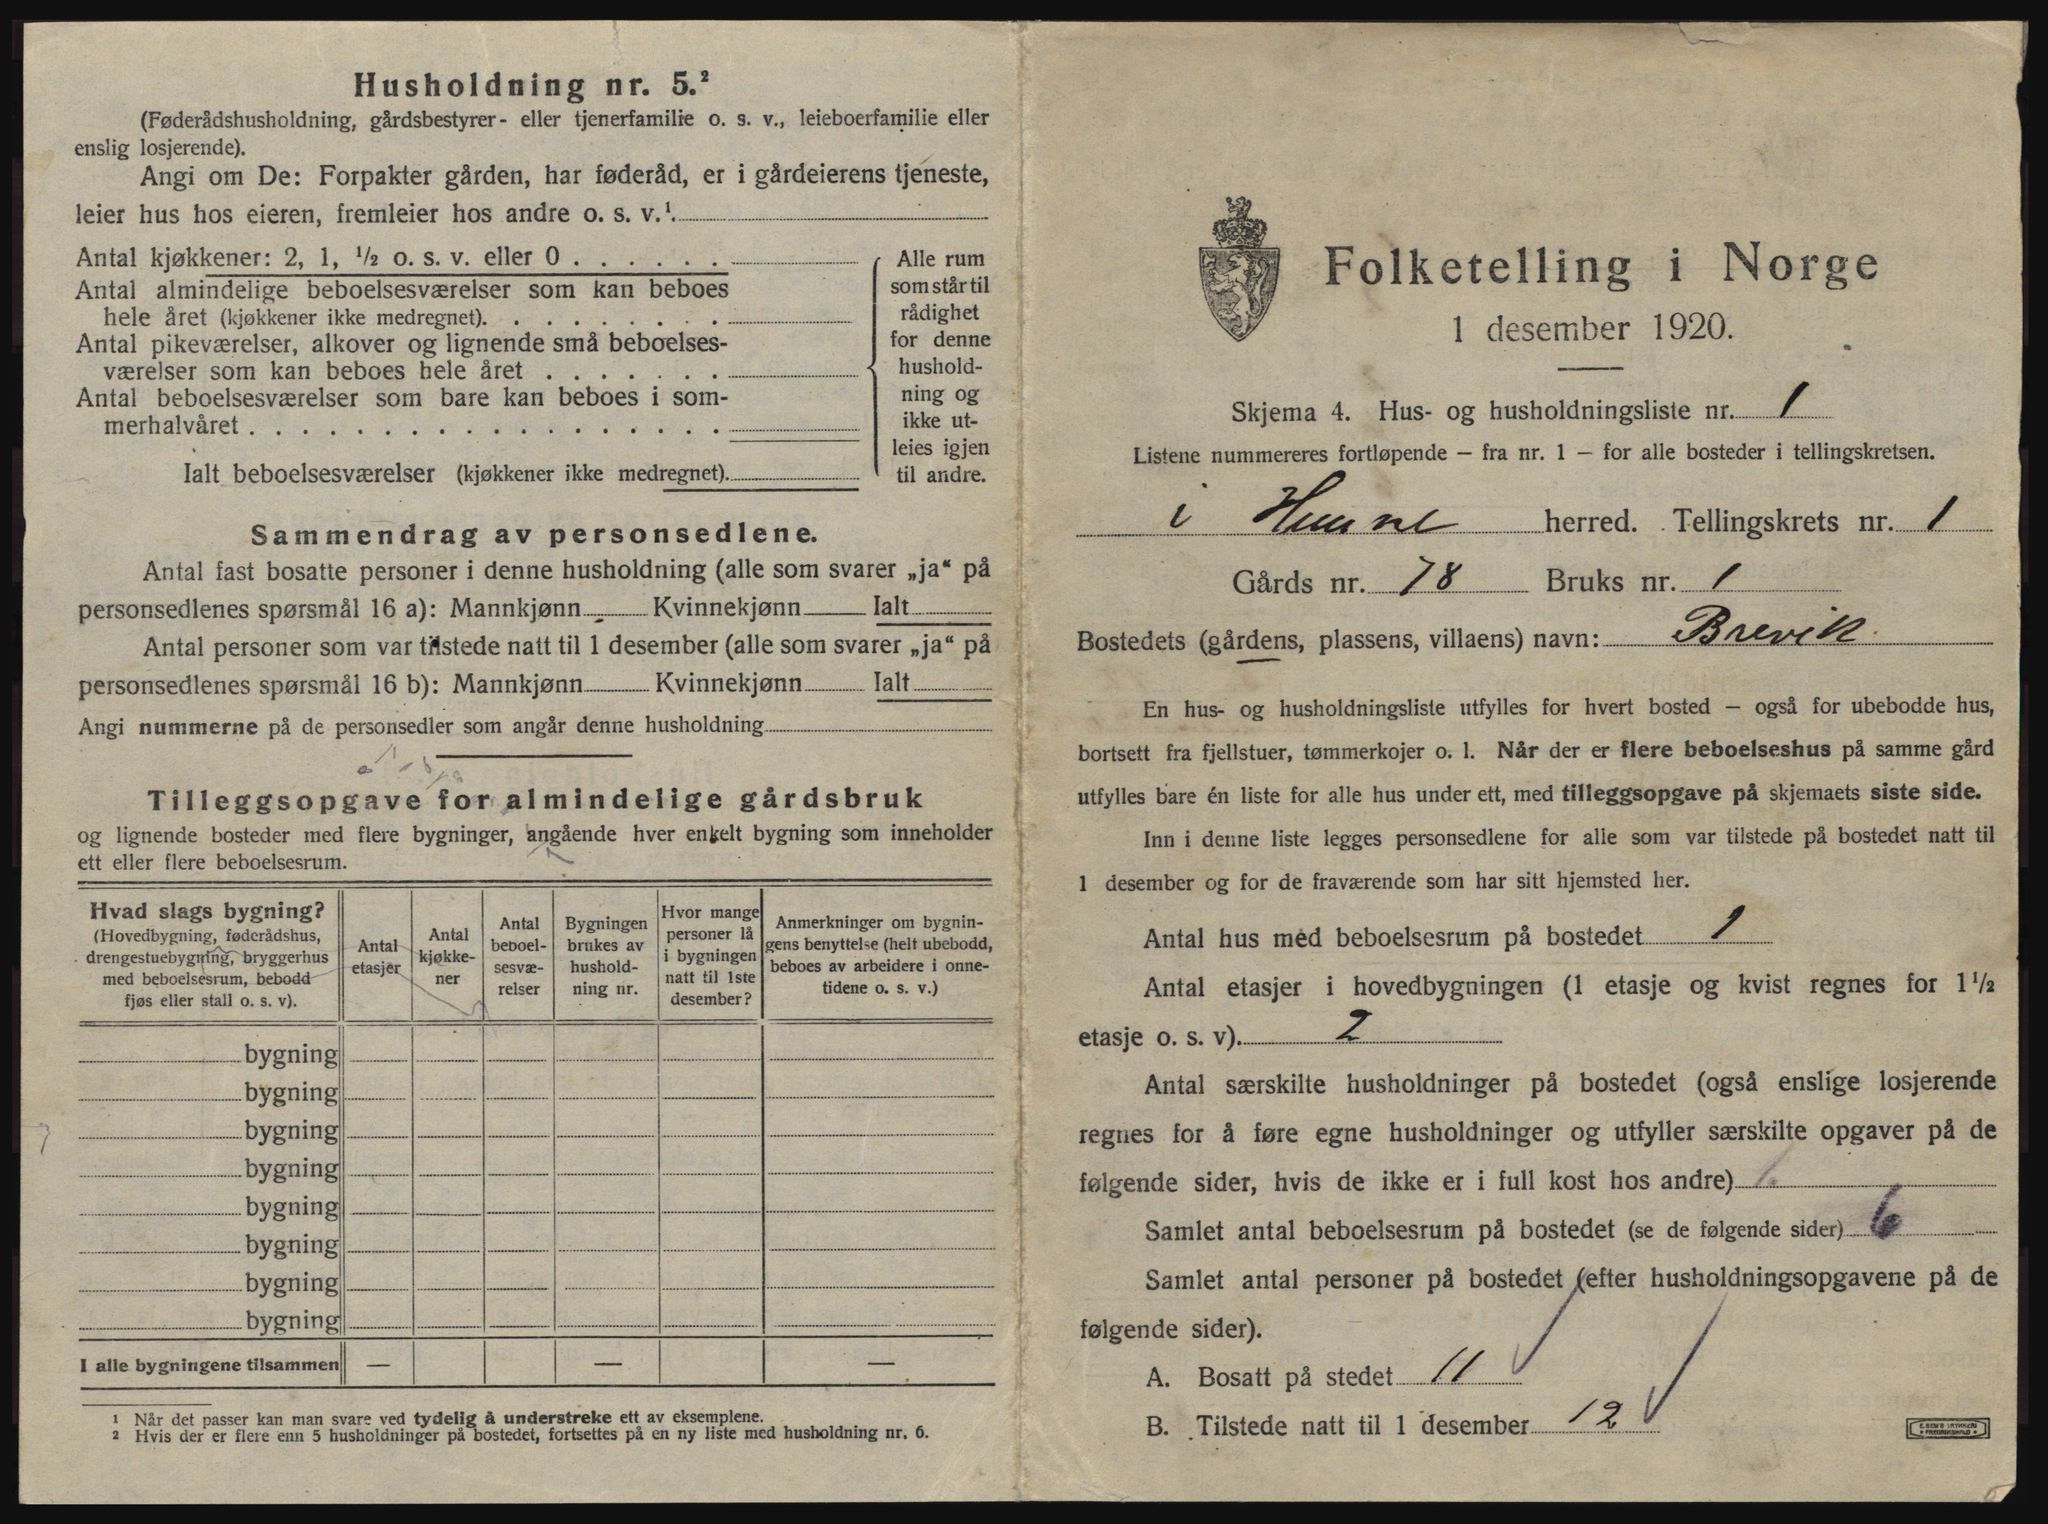 Husholdning nr. 5.²
(Føderådshusholdning, gårdsbestyrer- eller tjenerfamilie o. s. v., leieboerfamilie eller
enslig losjerende).
Angi om De: Forpakter gården, har føderåd, er i gårdeierens tjeneste,
leier hus hos eieren, fremleier hos andre o. s. v.¹.
Antal kjøkkener: 2, 1, ½ o. s. v. eller 0 . . . . . .
Antal almindelige beboelsesværelser som kan beboes
hele året (kjøkkener ikke medregnet). . . . . . . . .
Antal pikeværelser, alkover og lignende små beboelses-
værelser som kan beboes hele året . . . . . . .
Antal beboelsesværelser som bare kan beboes i som-
merhalvåret . . . . . . . . . . . . . . . . . .
Ialt beboelsesværelser (kjøkkener ikke medregnet).
Alle rum
som står til
rådighet
for denne
hushold-
ning og
ikke ut-
leies igjen
til andre.
Sammendrag av personsedlene.
Antal fast bosatte personer i denne husholdning (alle som svarer „ja“ på
personsedlenes spørsmål 16 a): Mannkjønn Kvinnekjønn Ialt
Antal personer som var tilstede natt til 1 desember (alle som svarer „ja“ på
personsedlenes spørsmål 16 b): Mannkjønn Kvinnekjønn Ialt
Angi nummerne på de personsedler som angår denne husholdning
Tilleggsopgave for almindelige gårdsbruk
og lignende bosteder med flere bygninger, angående hver enkelt bygning som inneholder
ett eller flere beboelsesrum.
Hvad slags bygning?
(Hovedbygning, føderådshus,
drengestuebygning, bryggerhus
med beboelsesrum, bebodd
fjøs eller stall o. s. v).
Antal
etasjer
Antal
kjøkke-
ner
Antal
beboel-
sesvæ-
relser
Bygningen
brukes av
hushold-
ning nr.
Hvor mange
personer lå
i bygningen
natt til 1ste
desember?
Anmerkninger om bygnin-
gens benyttelse (helt ubebodd,
beboes av arbeidere i onne-
tidene o. s. v.)
bygning
bygning
bygning
bygning
bygning
bygning
bygning
bygning
I alle bygningene tilsammen — — —
¹ Når det passer kan man svare ved tydelig å understreke ett av eksemplene.
² Hvis der er flere enn 5 husholdninger på bostedet, fortsettes på en ny liste med husholdning nr. 6.
Folketelling i Norge
1 desember 1920.
Skjema 4. Hus- og husholdningsliste nr. 1
Listene nummereres fortløpende — fra nr. 1 — for alle bosteder i tellingskretsen.
i Hemne herred. Tellingskrets nr. 1
Gårds nr. 78 Bruks nr. 1
Bostedets (gårdens, plassens, villaens) navn: Brevik.
En hus- og husholdningsliste utfylles for hvert bosted — også for ubebodde hus,
bortsett fra fjellstuer, tømmerkojer o. l. Når der er flere beboelseshus på samme gård
utfylles bare én liste for alle hus under ett, med tilleggsopgave på skjemaets siste side.
Inn i denne liste legges personsedlene for alle som var tilstede på bostedet natt til
1 desember og for de fraværende som har sitt hjemsted her.
Antal hus med beboelsesrum på bostedet 1
Antal etasjer i hovedbygningen (1 etasje og kvist regnes for 1½
etasje o. s. v). 2
Antal særskilte husholdninger på bostedet (også enslige losjerende
regnes for å føre egne husholdninger og utfyller særskilte opgaver på de
følgende sider, hvis de ikke er i full kost hos andre) 1.
Samlet antal beboelsesrum på bostedet (se de følgende sider) 6
Samlet antal personer på bostedet (efter husholdningsopgavene på de
følgende sider).
A. Bosatt på stedet 11
B. Tilstede natt til 1 desember 12